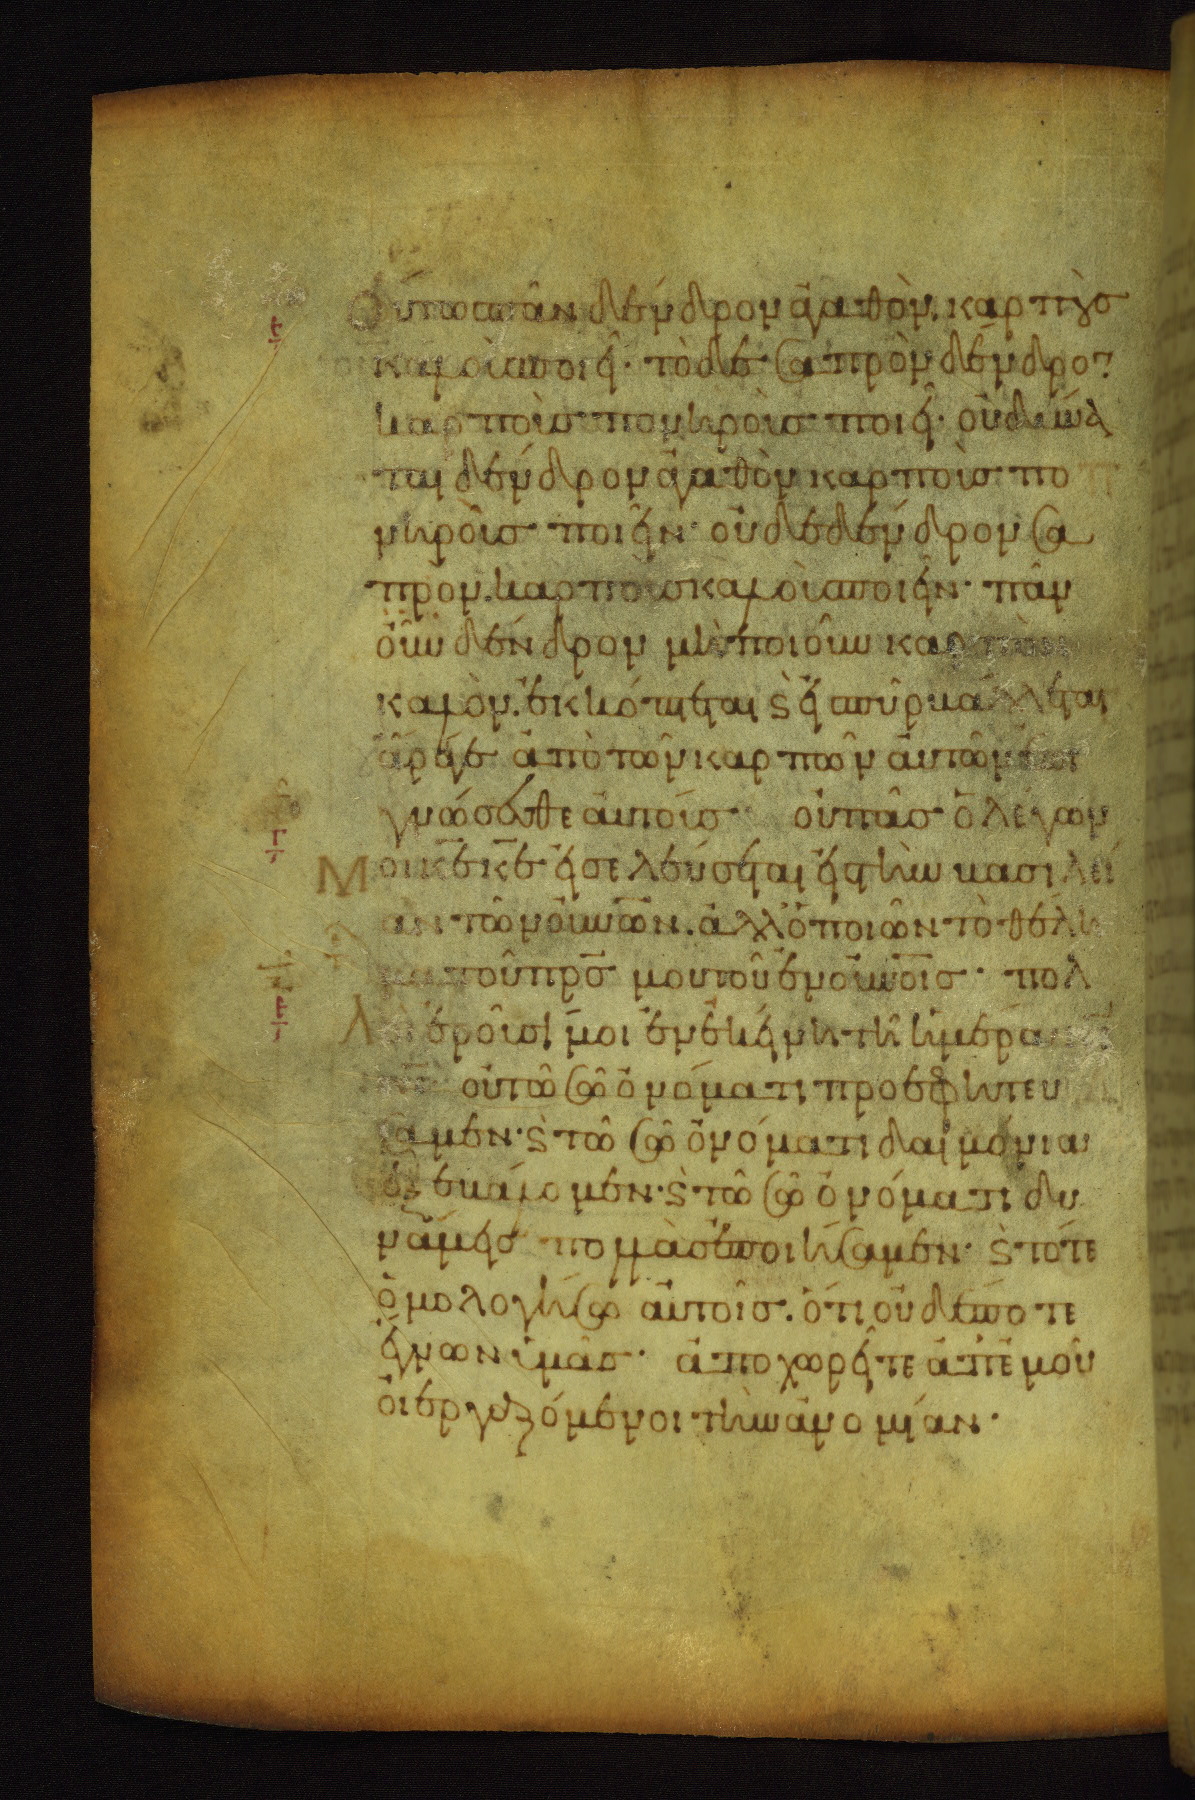 Οὕτω πᾶν δένδρον ἀγαθὸν, καρποὺσ
καλοὺσ ποιεῖ· τὸ δὲ σαπρὸν δένδρον
καρποὺσ πονηροὺσ ποιεῖ· οὐ δύνα
ται δένδρον ἀγαθὸν καρποὺσ πο
νηροὺσ ποιεῖν· οὐδὲ δένδρον σα
πρὸν, καρποὺσ καλοὺσ ποιεῖν· πᾶν
οὖν δένδρον μὴ ποιοῦν καρπὸν
καλὸν, ἐκκόπτεται ϗ εἰ πῦρ βάλλεται
ἄραγε ἀπὸ τῶν καρπῶν αὐτῶν ἐπι
γνώσεσθε αὐτούσ οὐ πᾶσ ὁ λέγων
Μοι κ̅ε κ̅ε εἰσελεύσεται εἰσ τὴν βασιλεί
αν τῶν οὐν̅ω̅ν. ἀλλ᾽ ὁ ποιῶν τὸ θέλη
μα τοῦ πρ̅σ μου τοῦ ἐν οὐν̅ο̅ισ· πολ
Λοὶ ἐροῦσί μοι ἐν ἐκείνη τῆ ἡμέρα κ̅ε
κ̅ε οὐ τῶ σῶ ὀνόματι προεφητεύ
σαμεν· ϗ τῶ σῶ ὀνόματι δαιμόνια
ἐξεβάλομεν· ϗ τῶ σῶ ὀνόματι δυ
νάμεισ πολλὰσ ἐποιήσαμεν· ϗ τότε
ὁμολογήσω αὐτοῖσ. ὅτι οὐδέποτε
ἔγνων ὑμᾶσ· ἀποχωρεῖτε ἀπ᾽ ἐμοῦ
οἱ ἐργαζόμενοι τὴν ἀνομίαν·